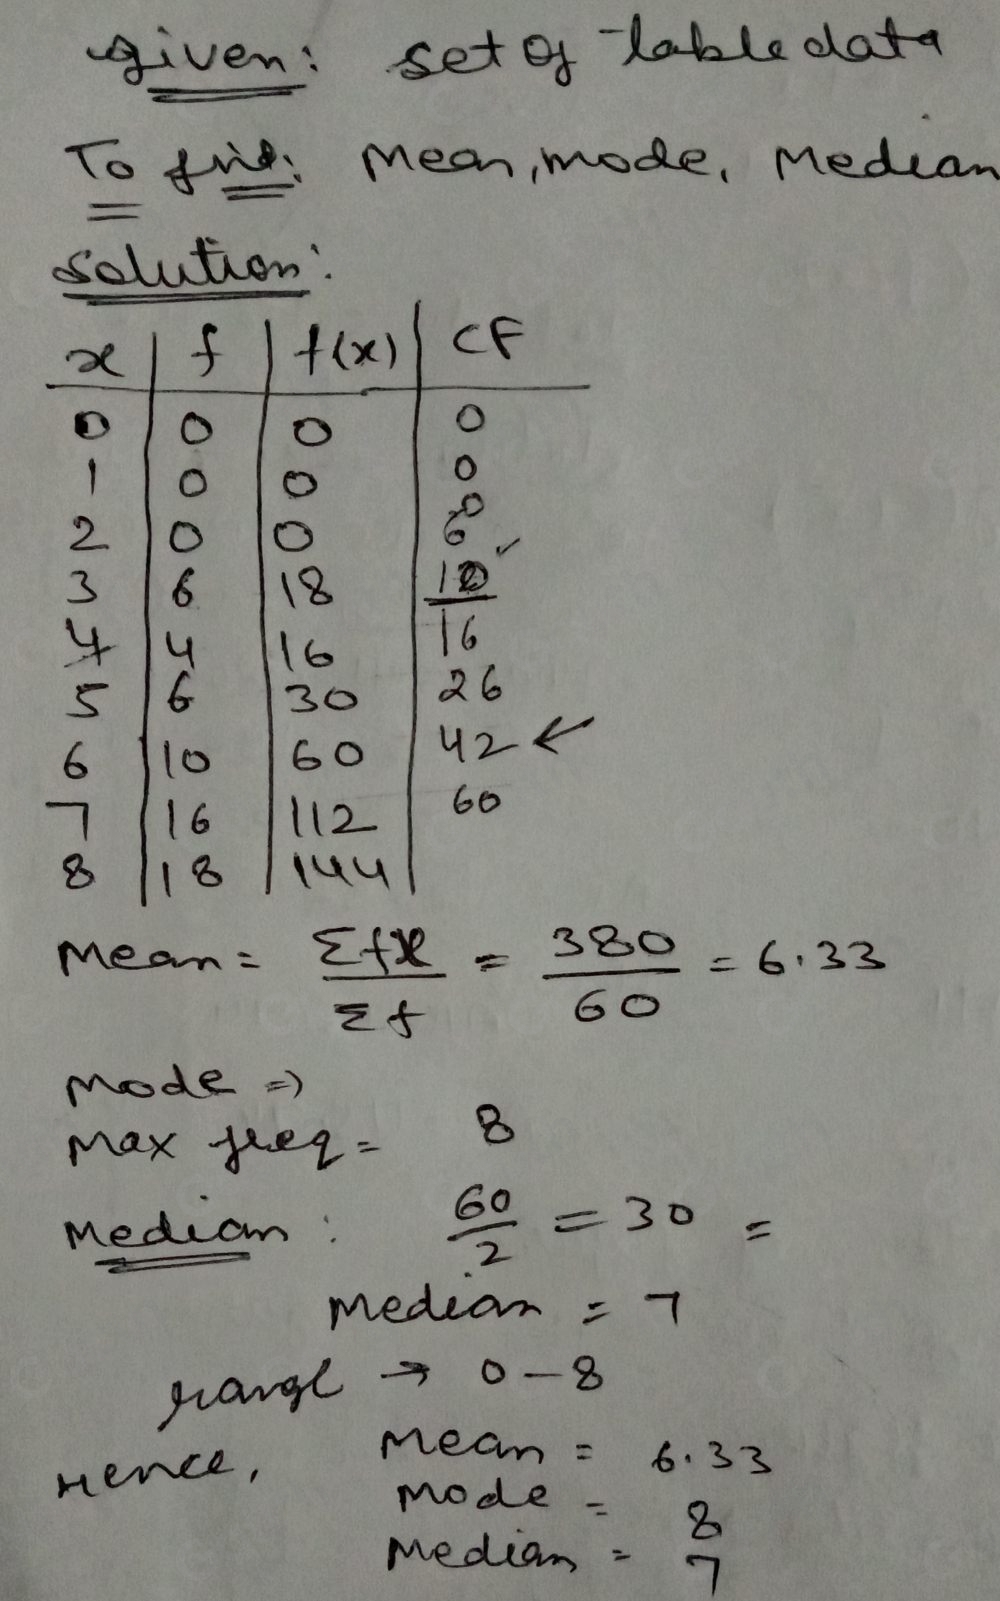 given: set of table data
To find: Mean, mode, Median
solution:
x f f(x) CF
0 0 0 0
1 0 0 0
2 0 0 6
3 6 18 10
4 4 16 16
5 6 30 26
6 10 60 42 ←
7 16 112 60
8 18 144
Mean = Σfx / Σf = 380 / 60 = 6.33
Mode ⇒
Max freq = 8
Median : 60/2 = 30 =
Median = 7
range → 0-8
Hence, Mean = 6.33
Mode = 8
Median = 7